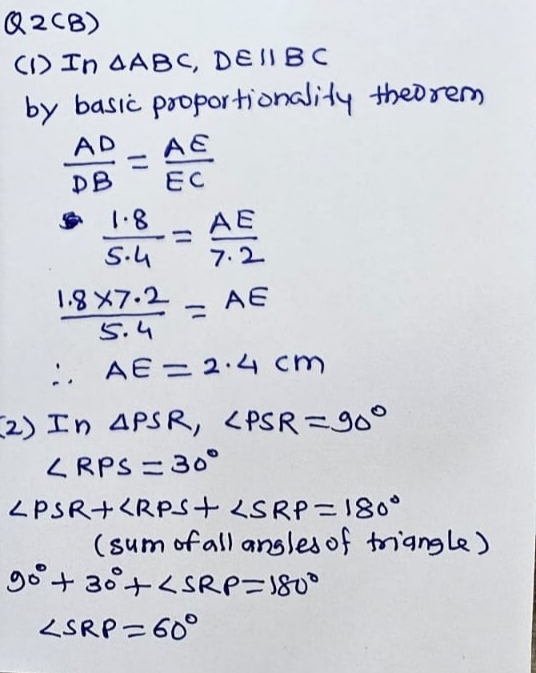 Q2(B)
(1) In ΔABC, DE || BC
by basic proportionality theorem
AD/DB = AE/EC
1.8/5.4 = AE/7.2
1.8×7.2/5.4 = AE
∴ AE = 2.4 cm
(2) In ΔPSR, ∠PSR = 90°
∠RPS = 30°
∠PSR + ∠RPS + ∠SRP = 180°
(sum of all angles of triangle)
90° + 30° + ∠SRP = 180°
∠SRP = 60°